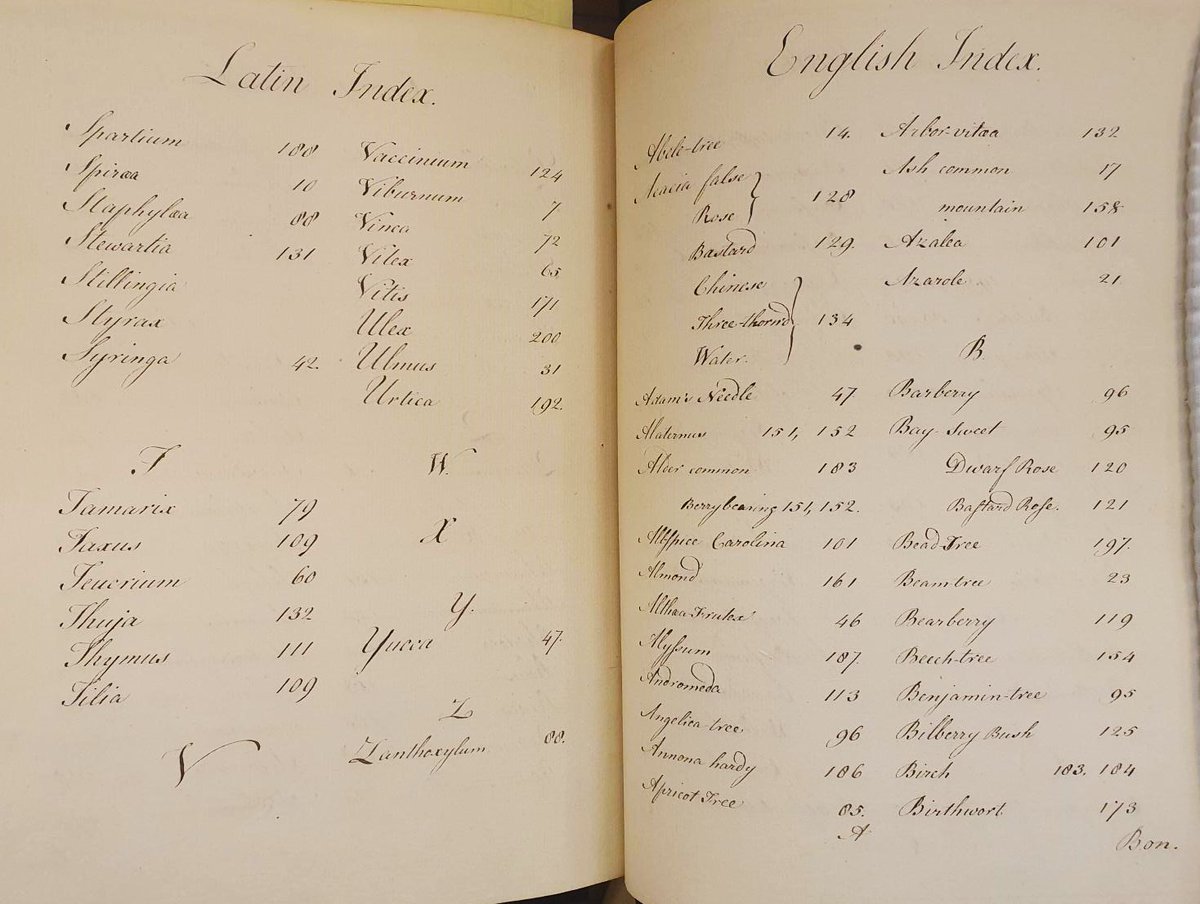 Latin Index.
Spartium 188
Spiræa 10
Staphylæa 88
Stewartia 131
Stillingia
Styrax
Syringa 42.
T
Tamarix 79
Taxus 109
Teucrium 60
Thuja 132
Thymus 111
Tilia 109
V
Vaccinium 124
Viburnum 7
Vinca 72
Vitex 65
Vitis 171
Ulex 200
Ulmus 31
Urtica 192.
W
X
Y.
Yucca 47.
Z
Zanthoxylum 88.
English Index.
Abele-tree 14.
Acacia false
Rose 128
Bastard 129.
Chinese
Three-thorn'd 134
Water.
Adam's Needle 47
Alaternus 151, 152
Alder common 183
Berrybearing 151, 152.
Allspice Carolina 101
Almond 161
Althæa Frutex 46
Alyssum 187.
Andromeda 113
Angelica-tree 96
Annona hardy 186
Apricot Tree 85.
A
Arbor-vitæa 132
Ash common 17
mountain 158
Azalea 101
Azarole 21
B
Barberry 96
Bay-Sweet 95
Dwarf Rose 120
Bastard Rose. 121
Bead Tree 197.
Beamtree 23
Bearberry 119
Beech-tree 154
Benjamin-tree 95
Bilberry Bush 125
Birch 183. 184
Birthwort 173
Bon.